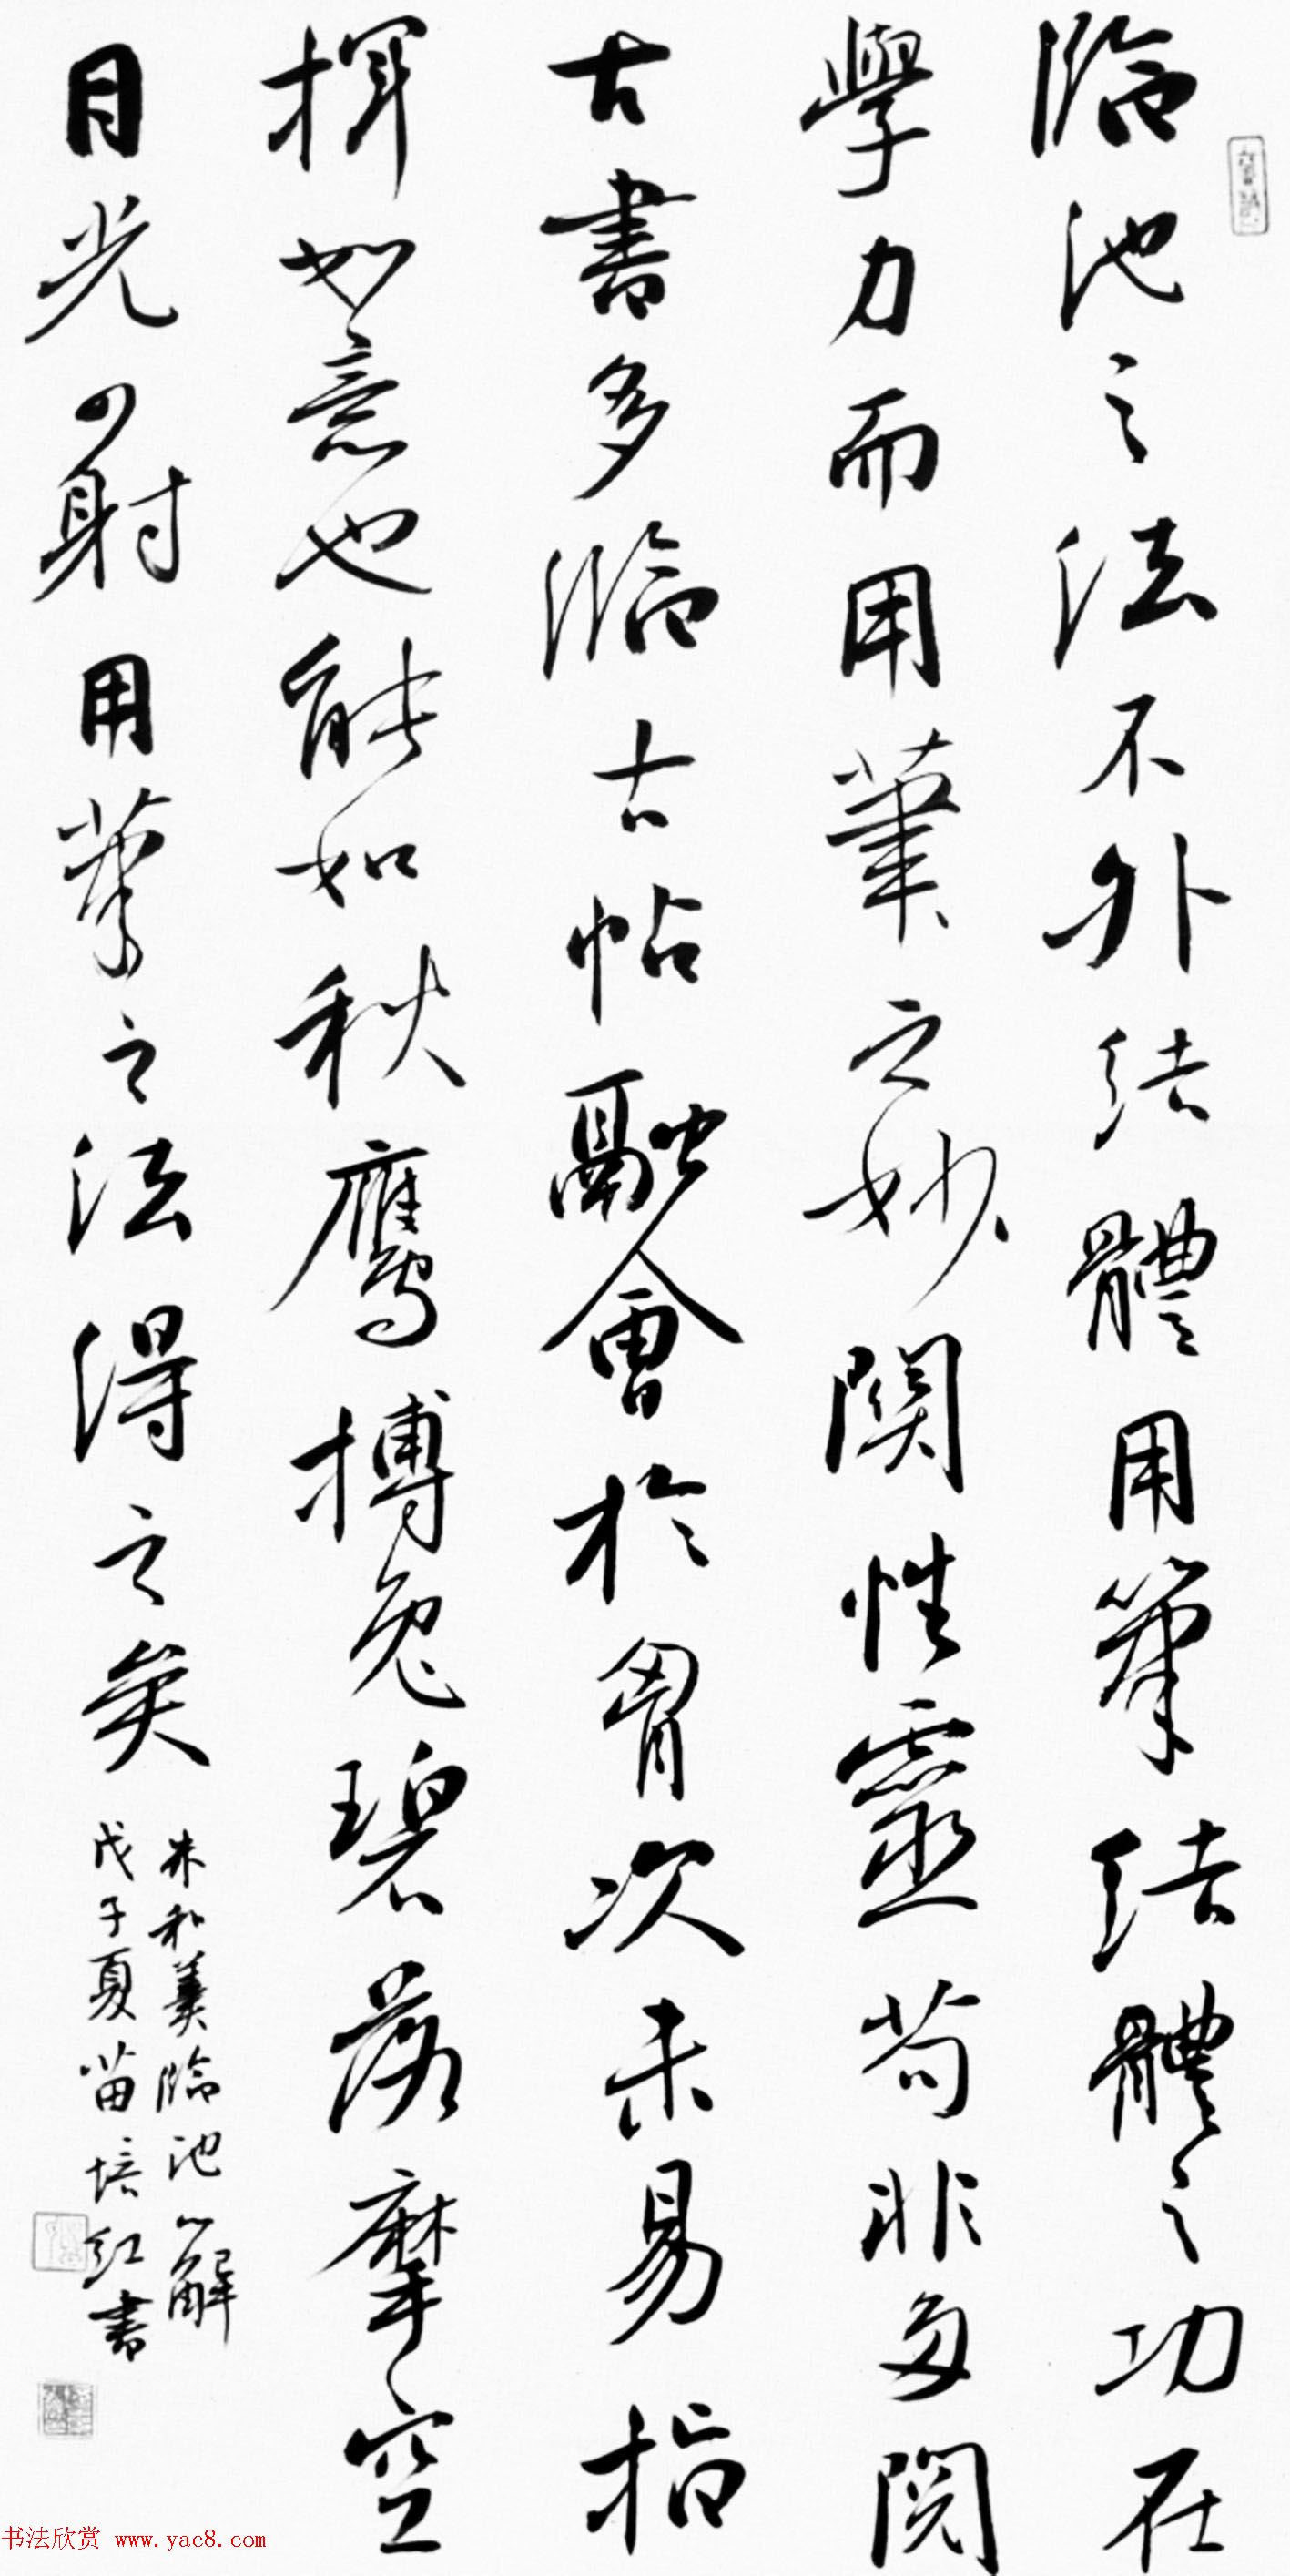 臨池之法不外結體用筆結體之功在
學力而用筆之妙關性靈苟非多閱
古書多臨古帖融會於胷次未易指
揮如意也能如秋鷹搏兔碧落摩空
目光四射用筆之法得之矣
朱和羹臨池心解
戊子夏苗培红書
书法欣赏 www.yac8.com